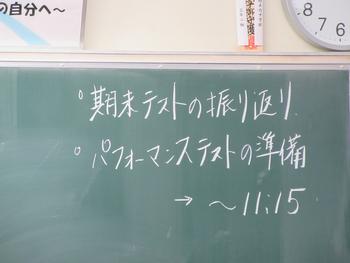 の自分へ〜
8
7
6
5
。期末テストの振り返り
。パフォーマンステストの準備
→ 〜11:15